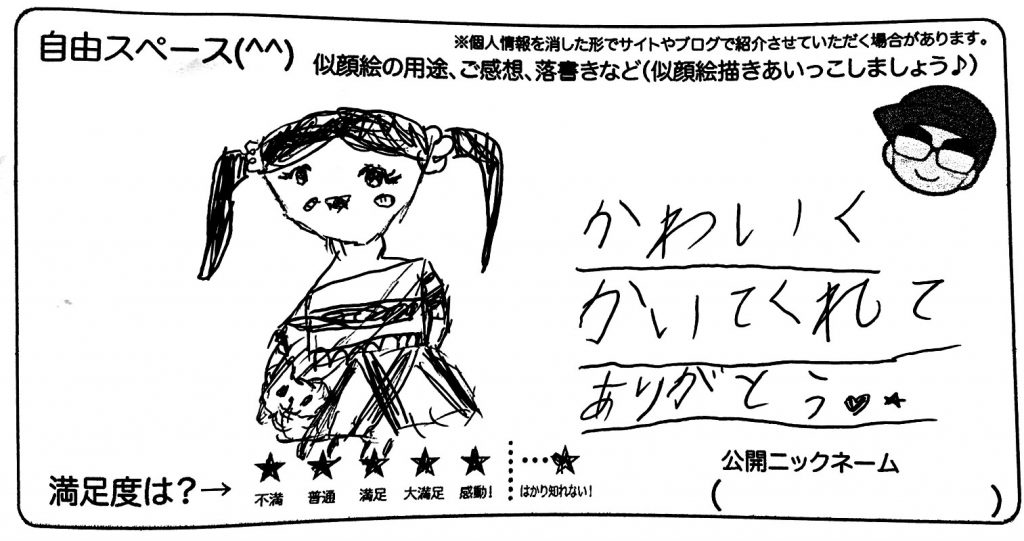 自由スペース(^^)
※個人情報を消した形でサイトやブログで紹介させていただく場合があります。
似顔絵の用途、ご感想、落書きなど(似顔絵描きあいっこしましょう♪)
かわいく
かいてくれて
ありがとう♥★
満足度は?→
★ ★ ★ ★ ★ …★
不満 普通 満足 大満足 感動! はかり知れない!
公開ニックネーム
( )